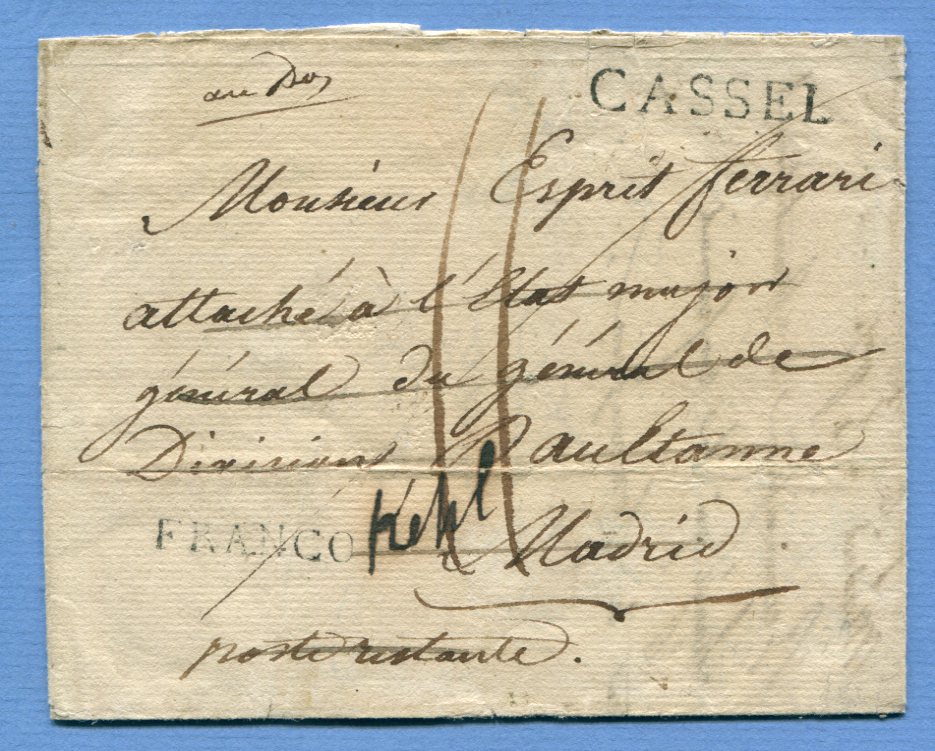 au Dos
CASSEL
Monsieur Esprit ferrari
attaché à l'état major
général du général de
Division Paultanne
FRANCO Kehl Madrid
poste restante.